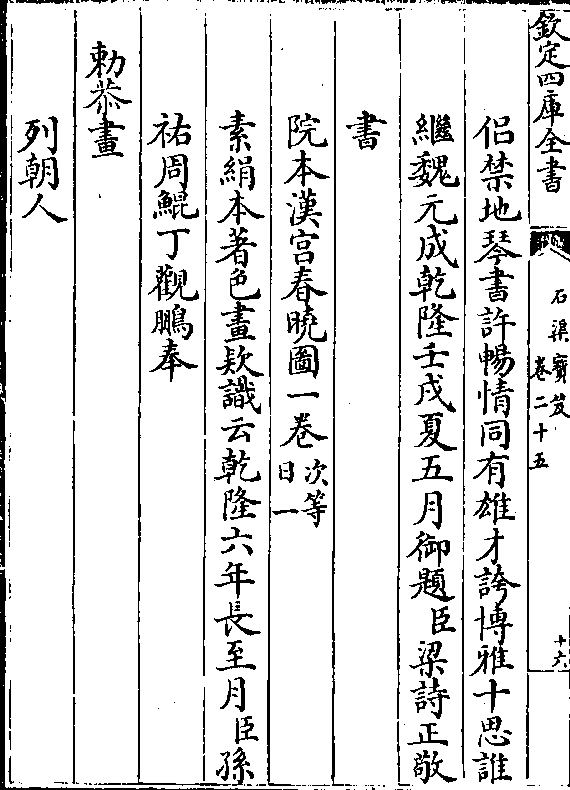 欽定四庫全書
石渠寳笈
卷二十五
十六
侣禁地琴書許暢情同有雄才誇博雅十思誰
繼魏元成乾隆壬戌夏五月御題臣梁詩正敬
書
院本漢宫春曉圖一卷次等
日一
素絹本著色畫欵識云乾隆六年長至月臣孫
祜周鯤丁觀鵬奉
勅恭畫
列朝人